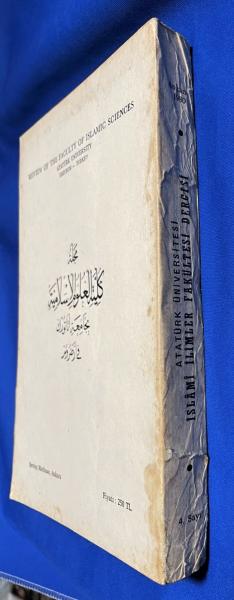 REVIEW OF THE FACULTY OF ISLAMIC SCIENCES
ATATÜRK UNIVERSITY
ERZURUM — TURKEY
مجلة
كلية العلوم الإسلامية
بجامعة أتاتورك
في أرضروم
Sevinç Matbaası, Ankara
Fiyatı : 250 TL.
ATATÜRK ÜNİVERSİTESİ
İSLÂMİ İLİMLER FAKÜLTESİ DERGİSİ
4. Sayı